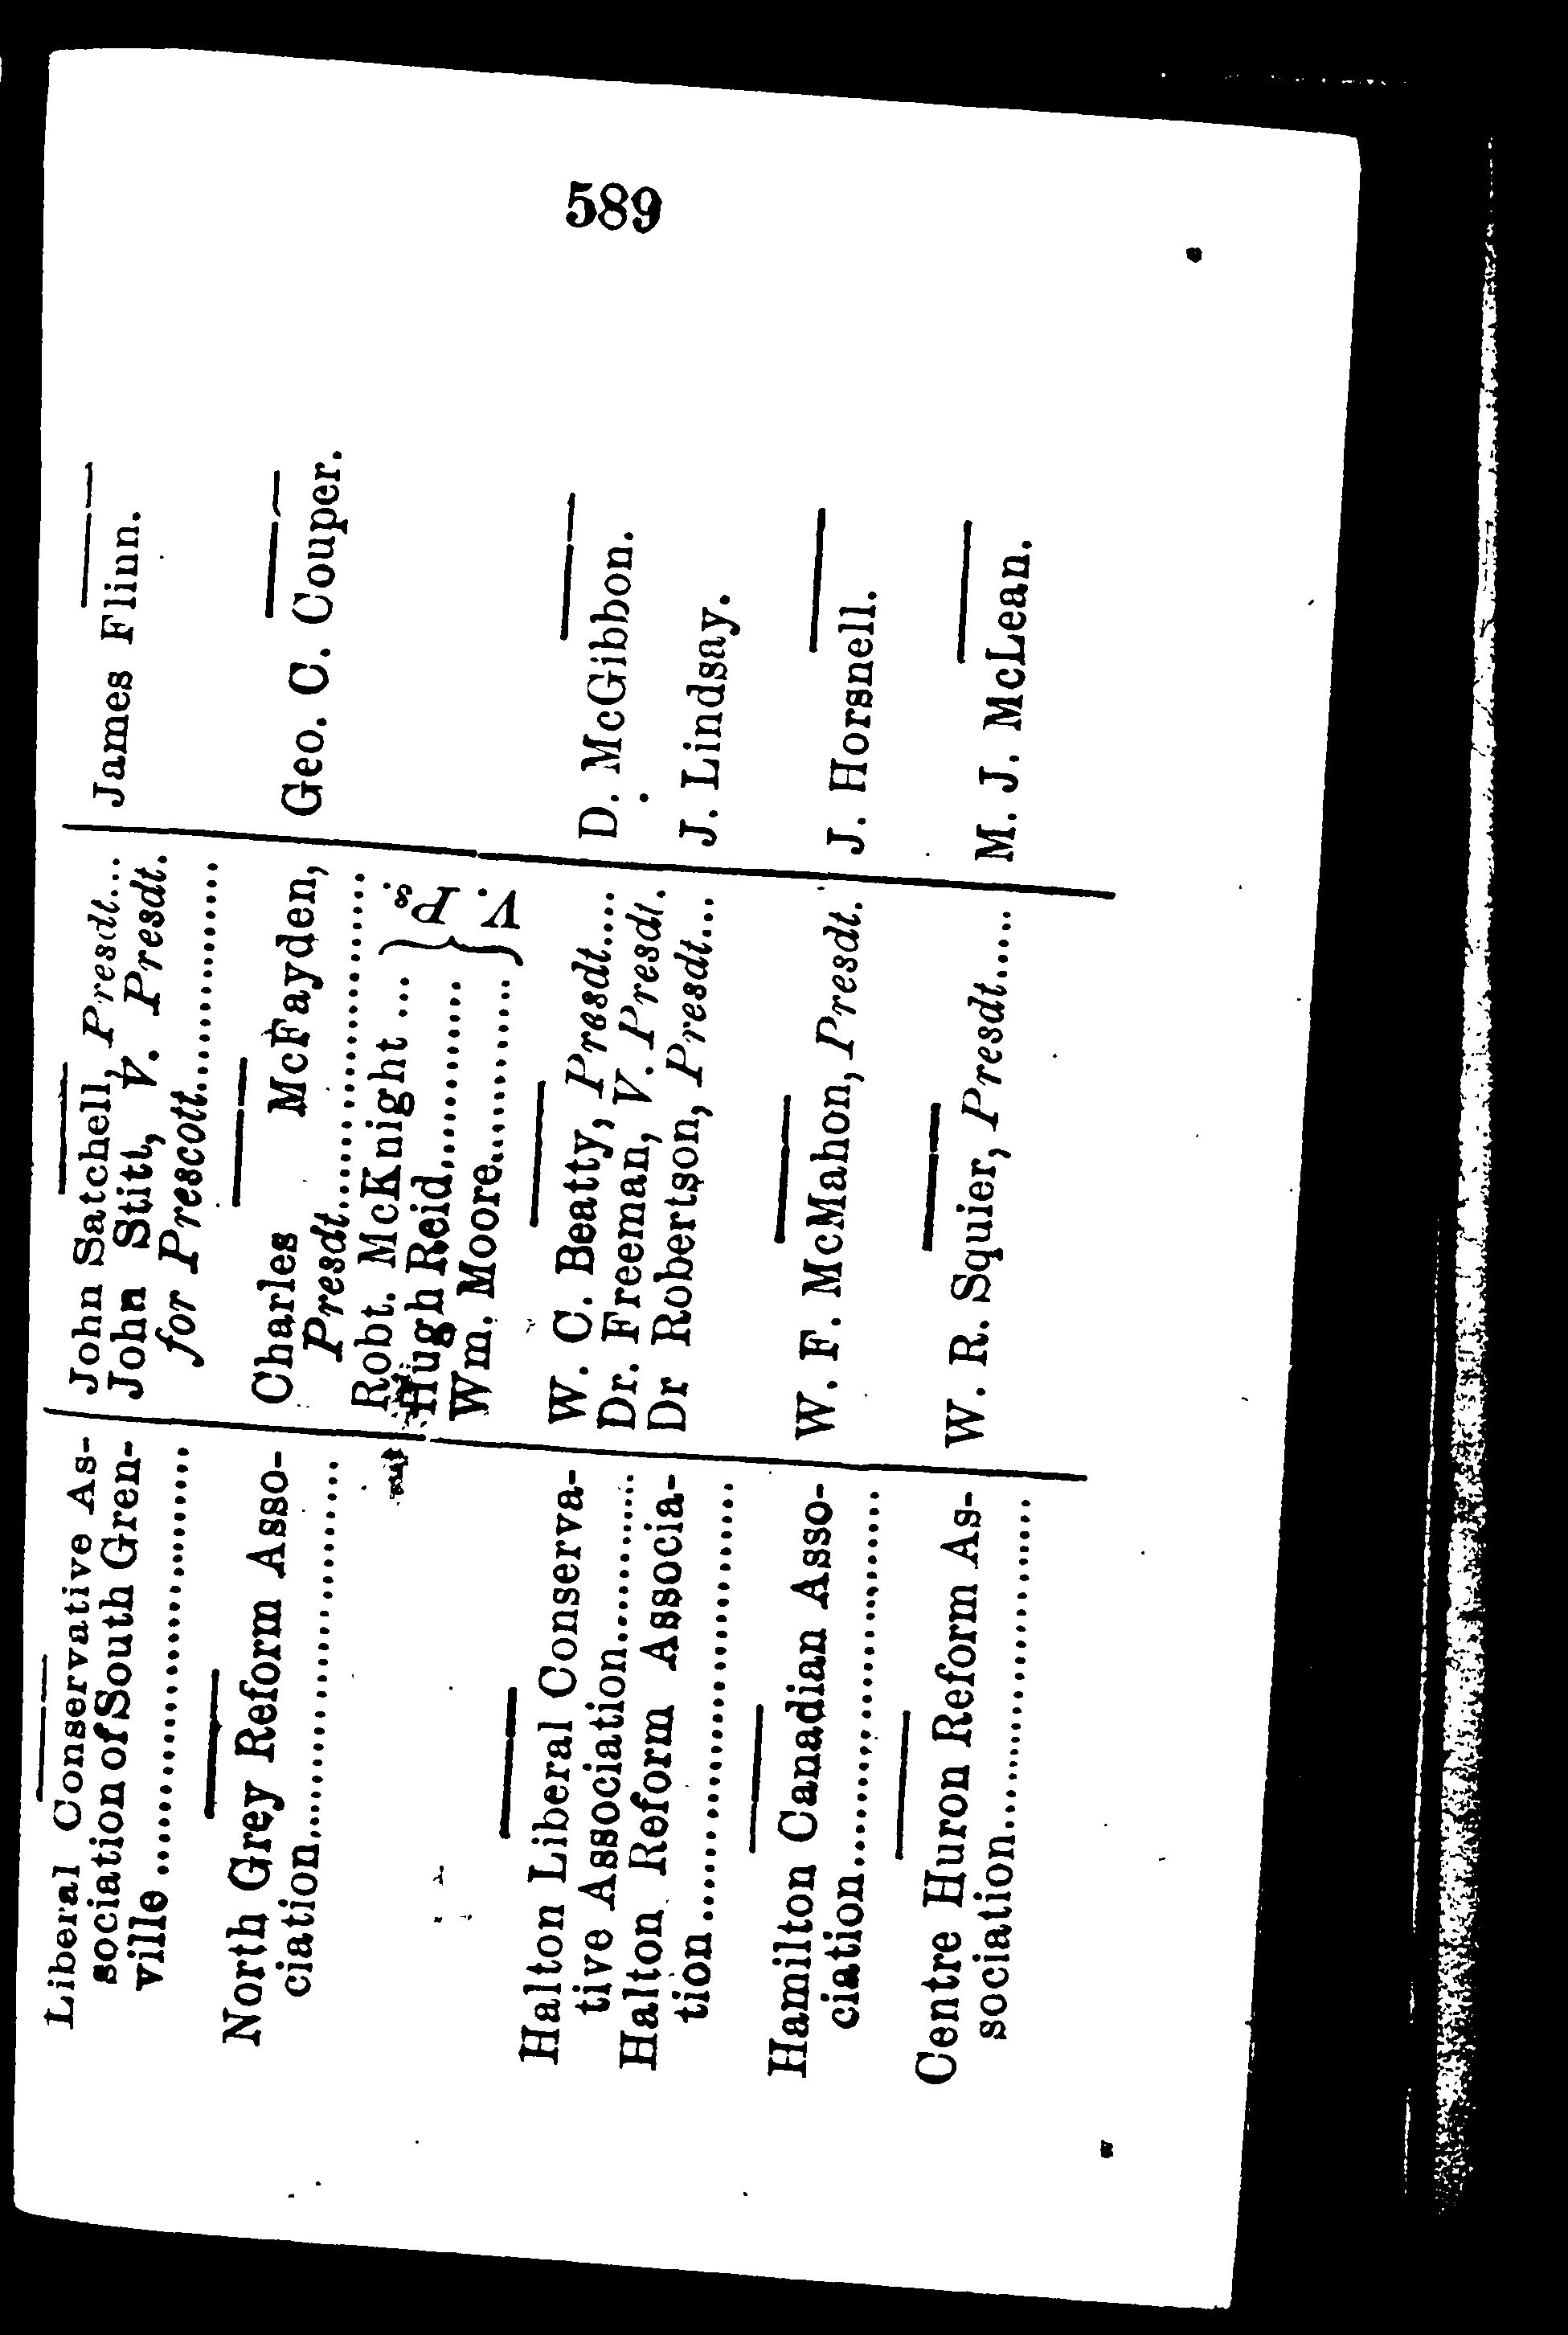 589
Liberal Conservative As-
sociation of South Gren-
ville ..............................
John Satchell, Presdt...
John Stitt, V. Presdt.
for Prescott..................
James Flinn.
North Grey Reform Asso-
ciation..............................
Charles McFayden,
Presdt..............................
Robt. McKnight ...
Hugh Reid............
Wm. Moore............
V. Ps.
Geo. C. Couper.
Halton Liberal Conserva-
tive Association............
W. C. Beatty, Presdt....
Dr. Freeman, V. Presdt.
D. McGibbon.
Halton Reform Associa-
tion..............................
Dr Robertson, Presdt...
J. Lindsay.
Hamilton Canadian Asso-
ciation..............................
W. F. McMahon, Presdt.
J. Horsnell.
Centre Huron Reform As-
sociation..............................
W. R. Squier, Presdt.....
M. J. McLean.